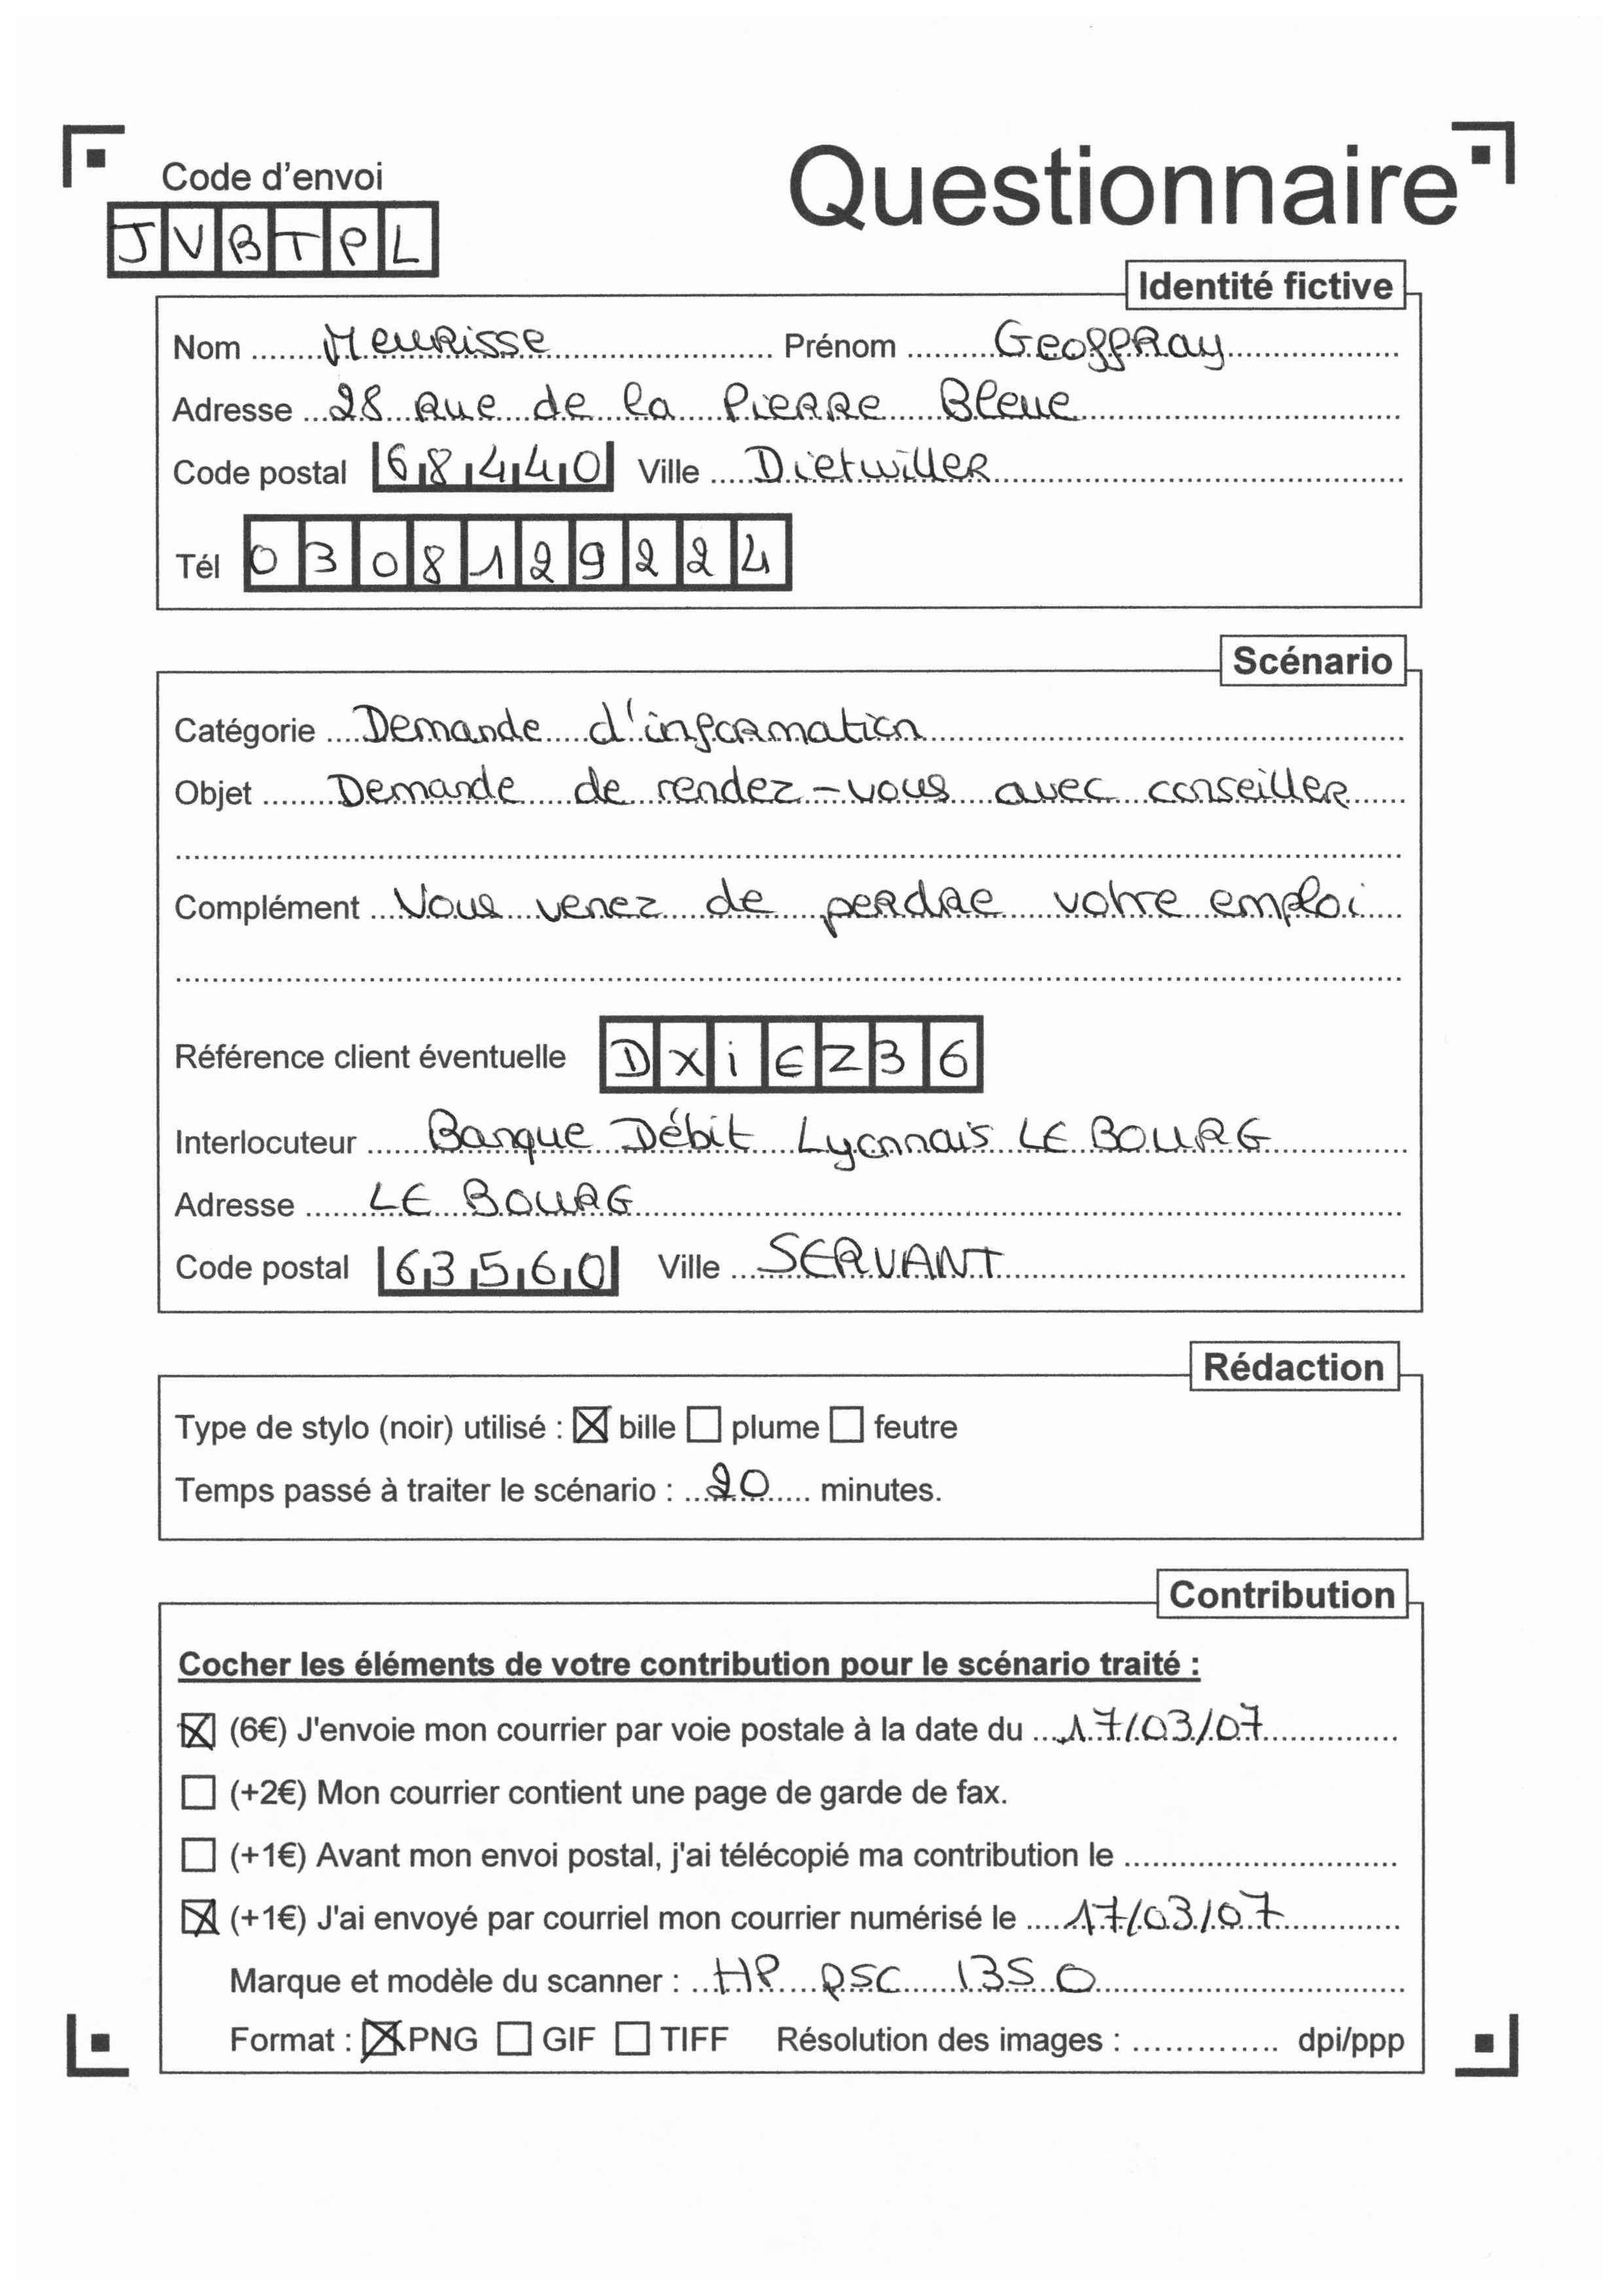 Questionnaire
Code d'envoi
JVBTPL
Identité fictive
Nom Meurisse Prénom Geoffray
Adresse 28 rue de la Pierre Bleue
Code postal 68440 Ville Dietwiller
Tél 0308129224
Scénario
Catégorie Demande d'information
Objet Demande de rendez-vous avec conseiller
Complément Vous venez de perdre votre emploi
Référence client éventuelle DXiEZ36
Interlocuteur Banque Débit Lyonnais LE BOURG
Adresse LE BOURG
Code postal 63560 Ville SERVANT
Rédaction
Type de stylo (noir) utilisé : ☒ bille ☐ plume ☐ feutre
Temps passé à traiter le scénario : 20 minutes.
Contribution
Cocher les éléments de votre contribution pour le scénario traité :
☒ (6€) J'envoie mon courrier par voie postale à la date du 17/03/07
☐ (+2€) Mon courrier contient une page de garde de fax.
☐ (+1€) Avant mon envoi postal, j'ai télécopié ma contribution le
☒ (+1€) J'ai envoyé par courriel mon courrier numérisé le 17/03/07
Marque et modèle du scanner : HP PSC 1350
Format : ☒ PNG ☐ GIF ☐ TIFF Résolution des images : dpi/ppp